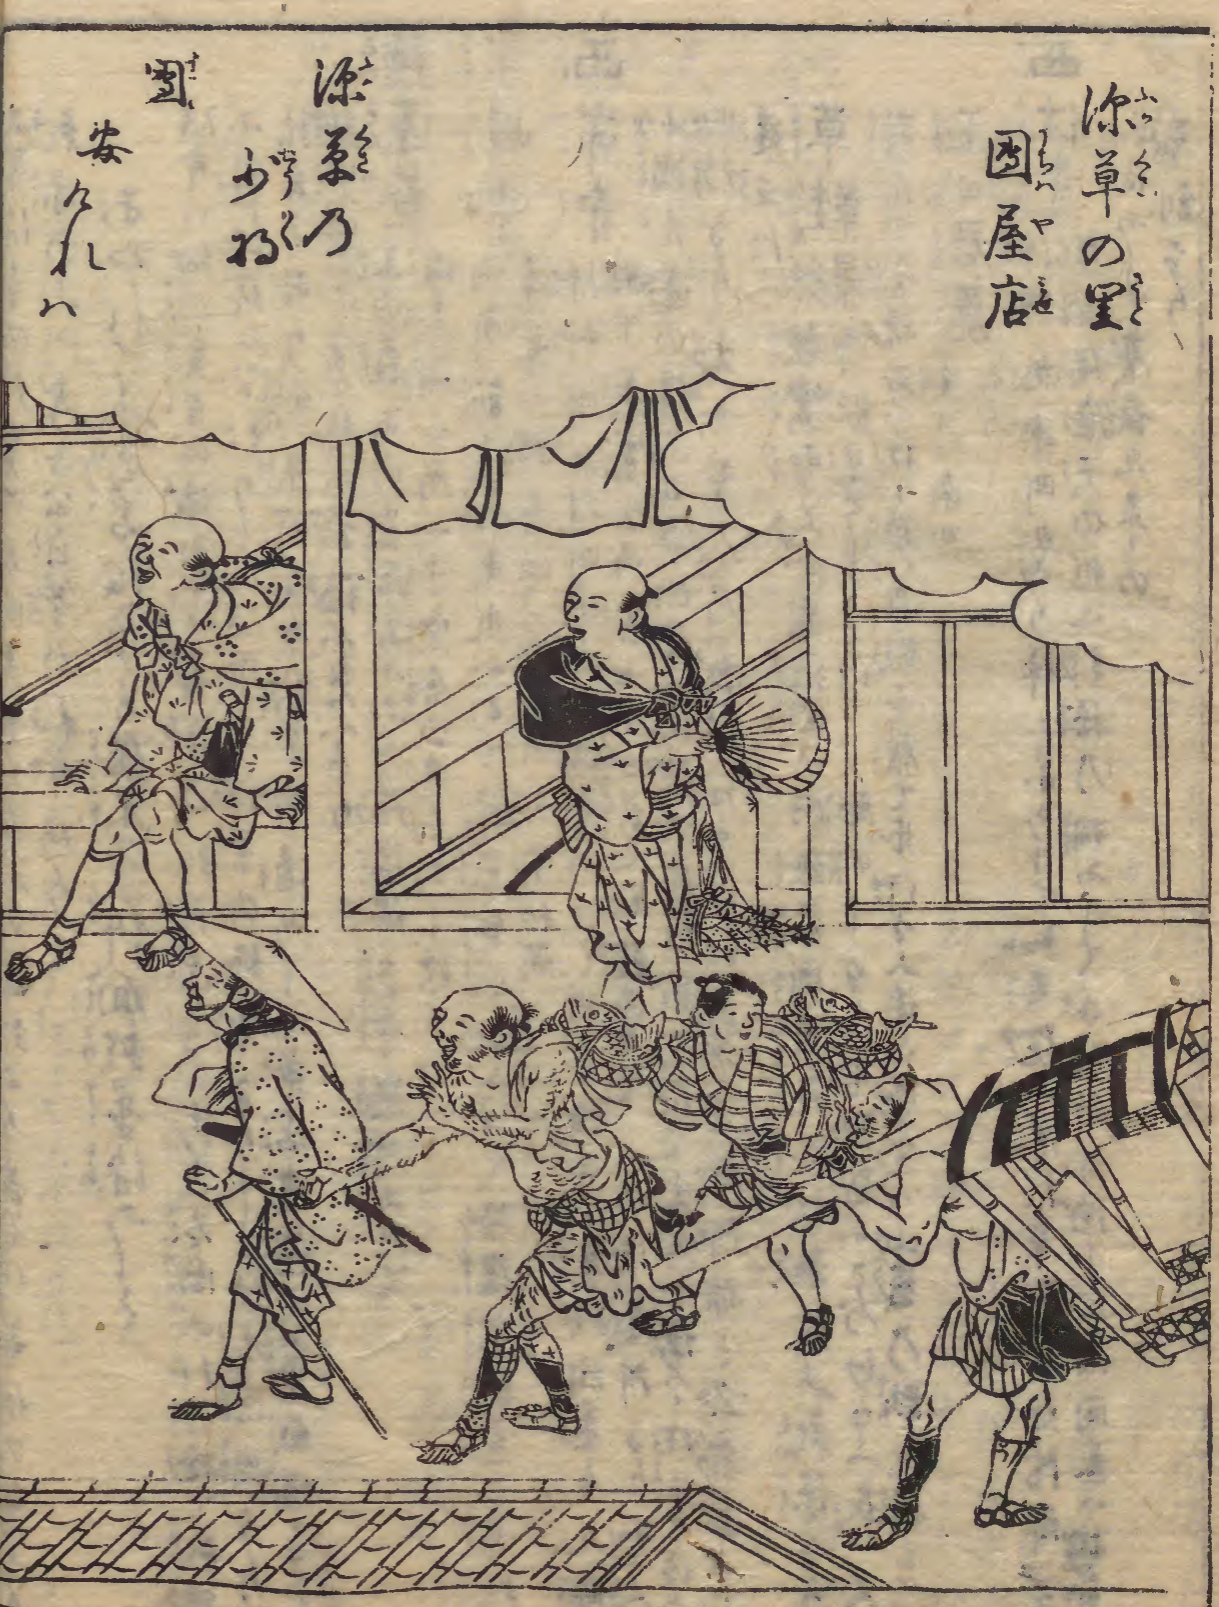 深草の里
團屋店
深草乃
少将
團
安けれハ